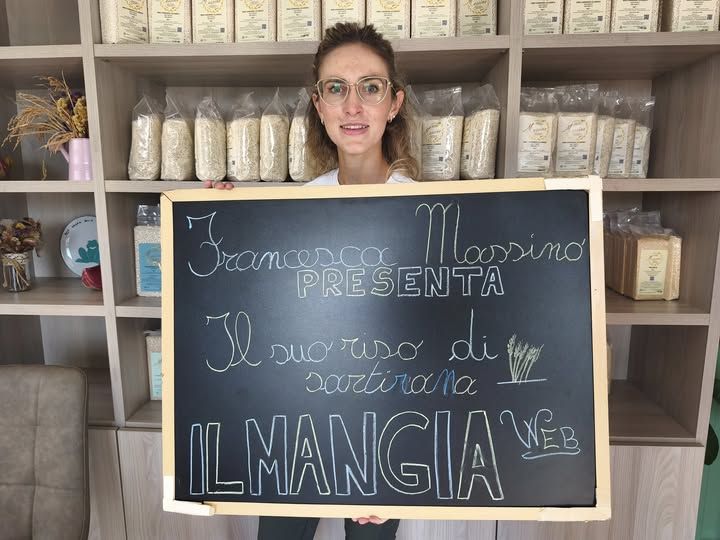 Francesca Massino
PRESENTA
Il suo riso di
sartirana
IL MANGIA WEB